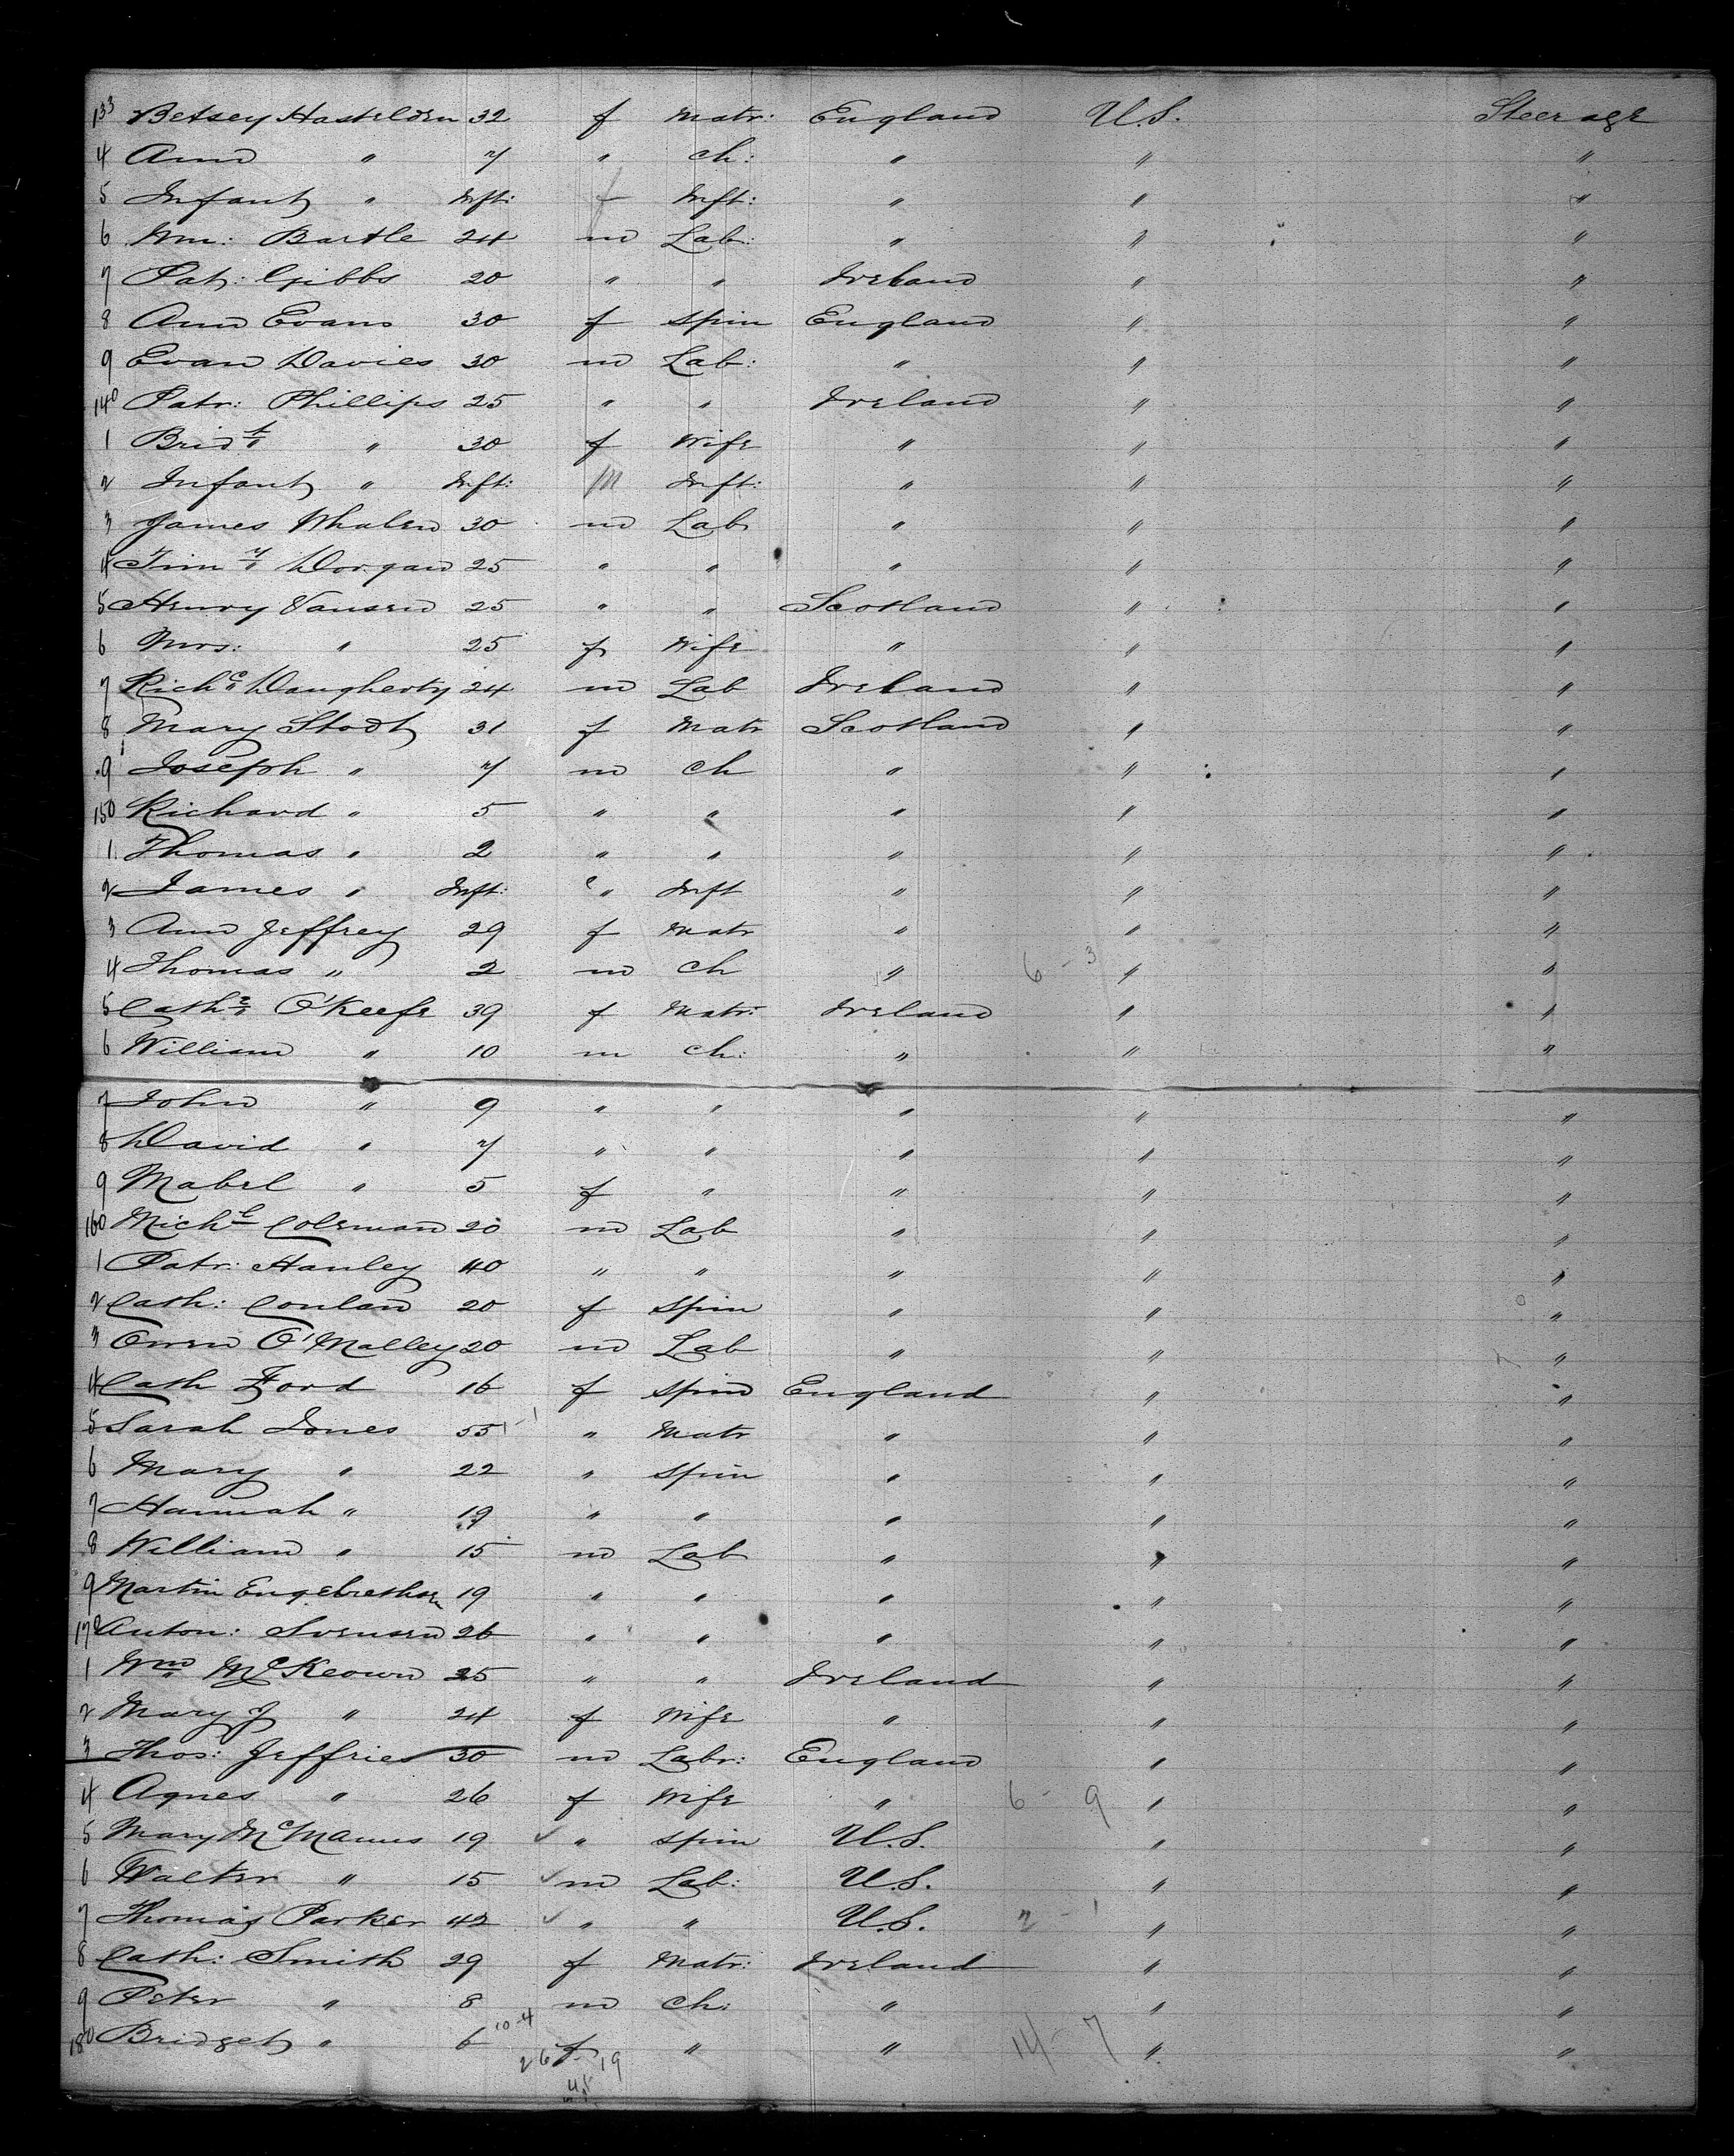 133 Betsey Haselden 32 f Matr: England U.S. Steerage
4 Ann " 7 " ch: " " "
5 Infant " Inft: f Inft: " " "
6 Wm: Bartle 24 m Lab: " " "
7 Pat: Gibbs 20 " " Ireland " "
8 Ann Evans 30 f Spin England " "
9 Evan Davies 30 m Lab: " " "
140 Patr: Phillips 25 " " Ireland " "
1 Bridt " 30 f Wife " " "
2 Infant " Inft: m Inft: " " "
3 James Whalen 30 m Lab " " "
4 Timy Dorgan 25 " " " " "
5 Henry Vansen 25 " " Scotland " "
6 Mrs: " 25 f Wife " " "
7 Richd Daugherty 24 m Lab Ireland " "
8 Mary Stodt 31 f Matr Scotland " "
9 Joseph " 7 m ch " " "
150 Richard " 5 " " " " "
1 Thomas " 2 " " " " "
2 James " Inft: " Inft " " "
3 Ann Jeffrey 29 f Matr " " "
4 Thomas " 2 m ch " 6 - 3 " "
5 Cathe O'Keefe 39 f Matr: Ireland " "
6 William " 10 m ch: " " "
7 John " 9 " " " " "
8 David " 7 " " " " "
9 Mabel " 5 f " " " "
160 Michl Coleman 20 m Lab " " "
1 Patr: Hanley 40 " " " " "
2 Cath: Conlan 20 f Spin " " "
3 Owen O'Malley 20 m Lab " " "
4 Cath Ford 16 f Spin England " "
5 Sarah Jones 55 1 - 1 " Matr " " "
6 Mary " 22 " Spin " " "
7 Hannah " 19 " " " " "
8 William " 15 m Lab " " "
9 Martin Engebrethsen 19 " " " " "
170 Anton: Svensen 26 " " " " "
1 Wm McKeown 25 " " Ireland " "
2 Mary J " 24 f Wife " " "
3 Thos: Jeffries 30 m Labr: England " "
4 Agnes " 26 f Wife " 6 - 9 " "
5 Mary McManus 19 ✓ " Spin U.S. " "
6 Walter " 15 ✓ m Lab: U.S. " "
7 Thomas Parker 42 ✓ " " U.S. 2 - 1 " "
8 Cath: Smith 29 f Matr: Ireland " "
9 Peter " 8 m ch: " " "
180 Bridget " 6 f " " 14 - 7 " "
10-4
26 - 19
45